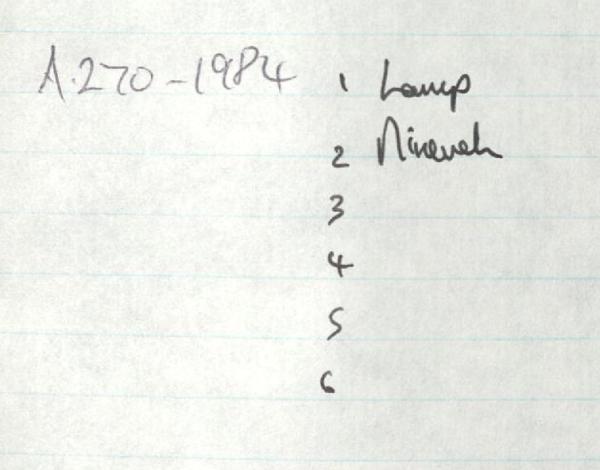 A.270-1984 1 Lamp
2 Nineveh
3
4
5
6